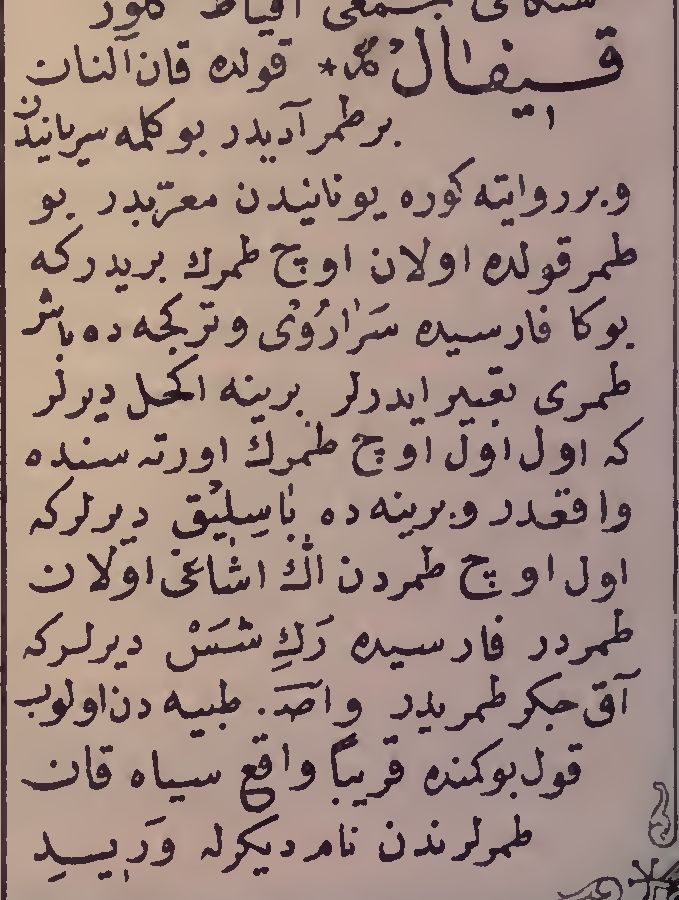 قیفال * قولده قان آلنان
بر طمر آدیدر بو كلمه سریانیدن
و بر روایته كوره یونانیدن معرّبدر بو
طمر قولده اولان اوچ طمرك بریدر كه
بوكا فارسیده سَرَارُوُی و تركجه ده باش
طمری تعبیر ایدرلر برینه اكحل دیرلر
كه اول اوچ طمرك اورته سنده
واقعدر و برینه ده باسِلیٖق دیرلر كه
اول اوچ طمردن اڭ اشاغی اولان
طمردر فارسیده رَكِ شَسَْ دیرلر كه
آق جكر طمریدر واصد. طبیه دن اولوب
قول بوكنده قریباً واقع سیاه قان
طمرلرندن نام دیكرله وَرٖیدِ